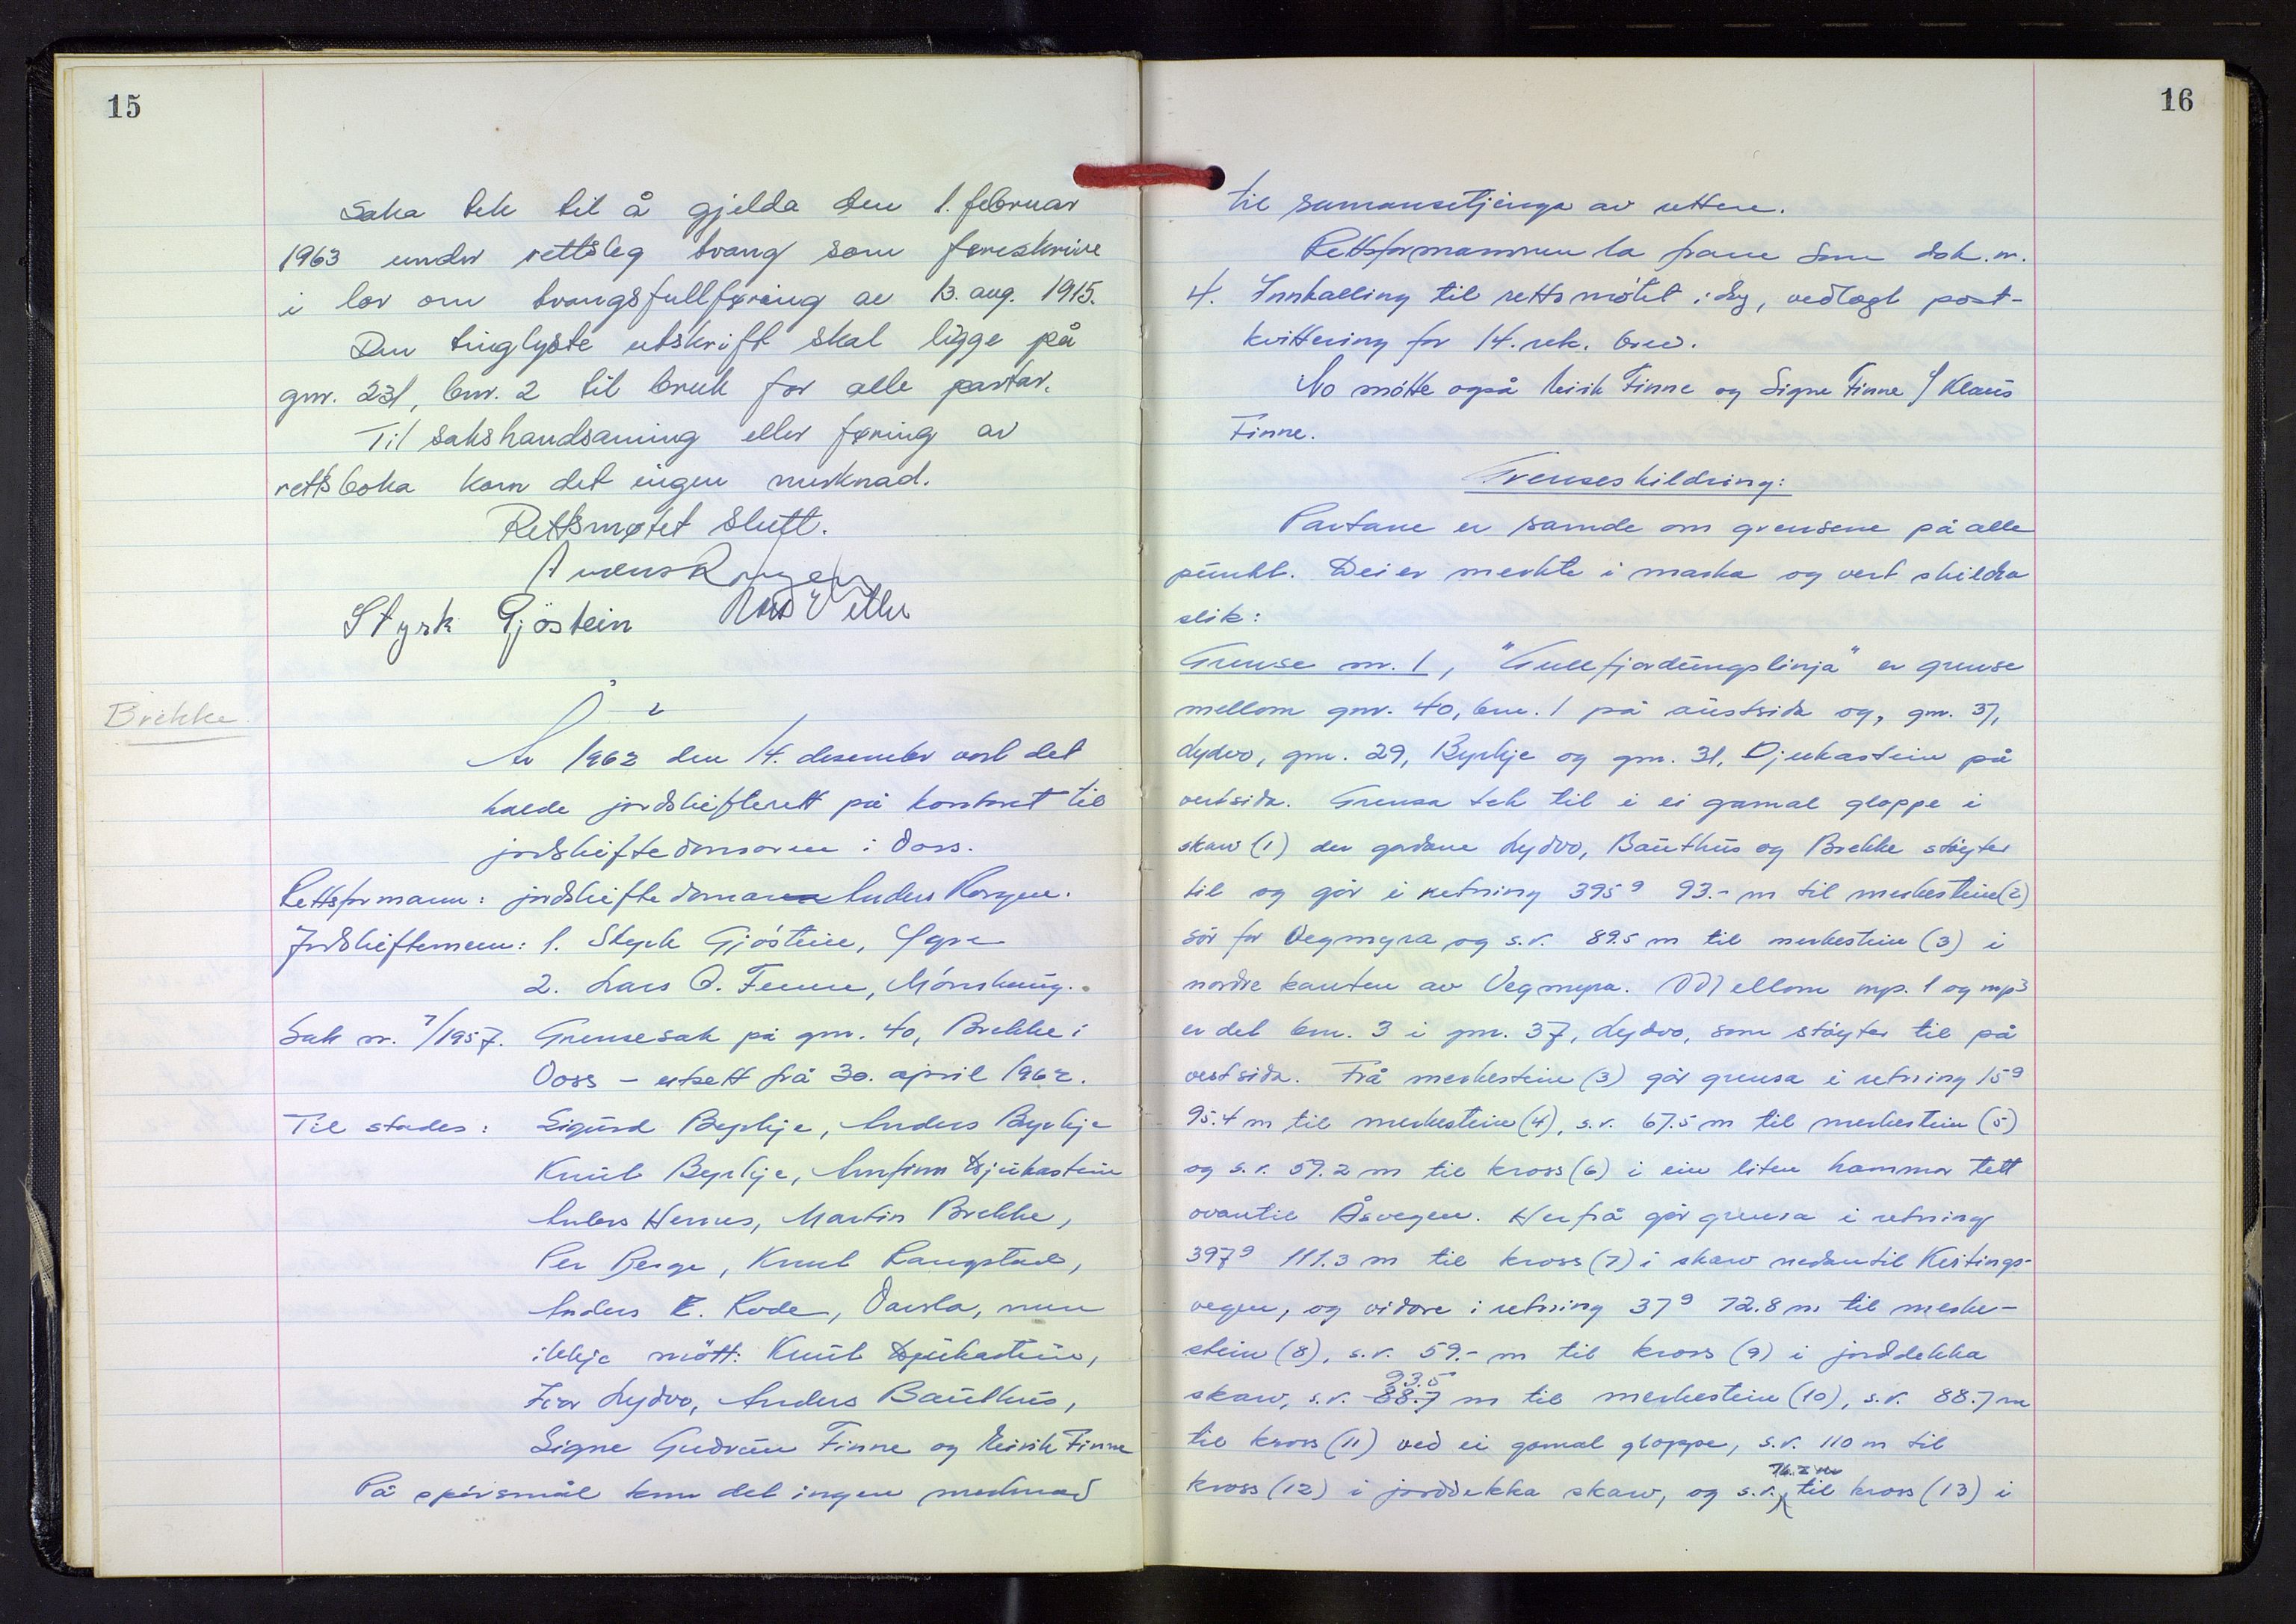 15
Saka tek til å gjelda den 1. februar
1963 under rettsleg tvang som foreskrive
i lov om tvangsfullføring av 13. aug. 1915.
Den tinglyste utskrift skal ligge på
gnr. 231, bnr. 2 til bruk for alle partar.
Til sakshandsaming eller føring av
rettsboka kom det ingen merknad.
Rettsmøtet slutt.
Styrk Gjöstein
Brekke
År 1962 den 14. desember vart det
halde jordskifterett på kontoret til
jordskiftedomaren i Voss.
Rettsformann: jordskiftedomar Anders
Jordskiftemenn: 1. Styrk Gjöstein,
2. Lars O. Finne, Mönshaug.
Sak nr. 7/1957. Grensesak på gnr. 40, Brekke i
Voss – utsett frå 30. april 1962.
Til stades: Sigurd Byrkje, Anders Byrkje
Knut Byrkje, Arnfinn Djukastein
Anders Hernes, Martin Brekke,
Per Berge, Knut Langstad,
Anders E. Rode, men
ikkje mött: Knut Djukastein,
Ivar Lydvo, Anders Bauthus,
Signe Gudrun Finne og Eirik Finne
På spörsmål kom det ingen merknad
16
til samansetjinga av retten.
Rettsformannen la fram som dok. nr.
4. Innkalling til rettsmötet i dag, vedlagt post-
kvittering for 14. rek. brev.
No mötte også Eirik Finne og Signe Finne f/ Klaus
Finne.
Grenseskildring:
Partane er samde om grensene på alle
punkt. Dei er merkte i marka og vert skildra
slik:
Grense nr. 1, "Gullfjordungslinja" er grense
mellom gnr. 40, bnr. 1 på austsida og, gnr. 37,
Lydvo, gnr. 29, Byrkje og gnr. 31, Djukastein på
vestsida. Grensa tek til i ei gamal gloppe i
skarv (1) der gardane Lydvo, Bauthus og Brekke stöyter
til og går i retning 395 g 93.- m til merkestein (2)
sör for Vegmyra og s.r. 89.5 m til merkestein (3) i
nordre kanten av Vegmyra. Mellom mp. 1 og mp 3
er det bnr. 3 i gnr. 37, Lydvo, som stöyter til på
vestsida. Frå merkestein (3) går grensa i retning 15 g
95.4 m til merkestein (4), s.r. 67.5 m til merkestein (5)
og s.r. 59.2 m til kross (6) i ein liten hammar tett
ovantil Åsvegen. Herfrå går grensa i retning
397 g 111.3 m til kross (7) i skarv nedantil Keitings-
vegen, og vidare i retning 37 g 72.8 m til merke-
stein (8), s.r. 59.- m til kross (9) i jorddekka
skarv, s.r. 88.7 93.5 m til merkestein (10), s.r. 88.7 m
til kross (11) ved ei gamal gloppe, s.r. 110 m til
kross (12) i jorddekka skarv, og s.r. 76.2 m til kross (13) i